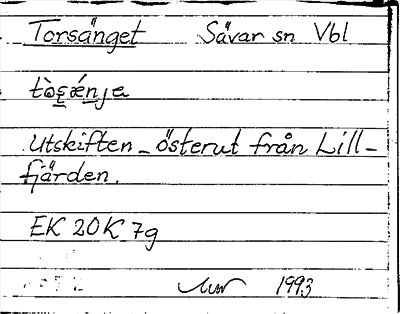 Torsänget Sävar sn Vbl
tòs̲ǽn̲ja
Utskiften – österut från Lill-
fjärden.
EK 20K 7g
1993